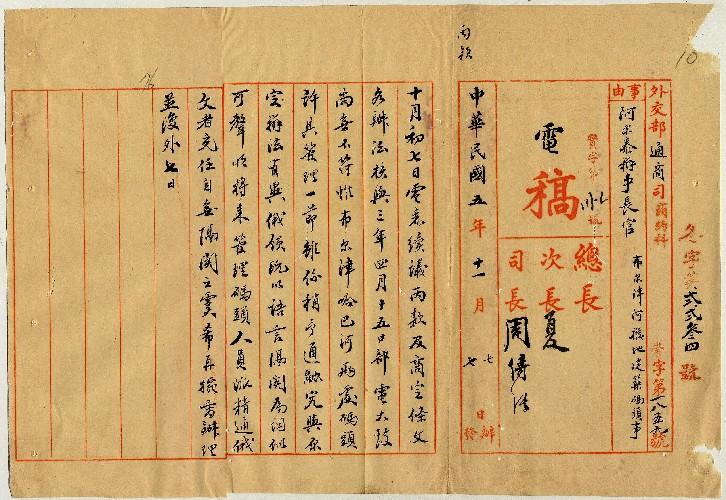 10
外交部通商司商約科
事由
阿尔泰辦事長官
布尔津河橋地段築碼頭事
冬字第弍弍叁四號
電稿
總長
次長夏
司長周傳經
中華民國五年十一月七日辦
七日發
兩款
十月初七日電悉續議兩款及商定條文
各辦法核與三年四月十五日部電大致
尚無不符惟布尔津哈巴河兩處碼頭
許其管理一節雖係稍予通融究與原
定辦法有異俄領既以語言隔閡為詞似
可聲明將來管理碼頭人員派精通俄
文者充任自無隔閡之虞希再接洽辦理
並復外七日